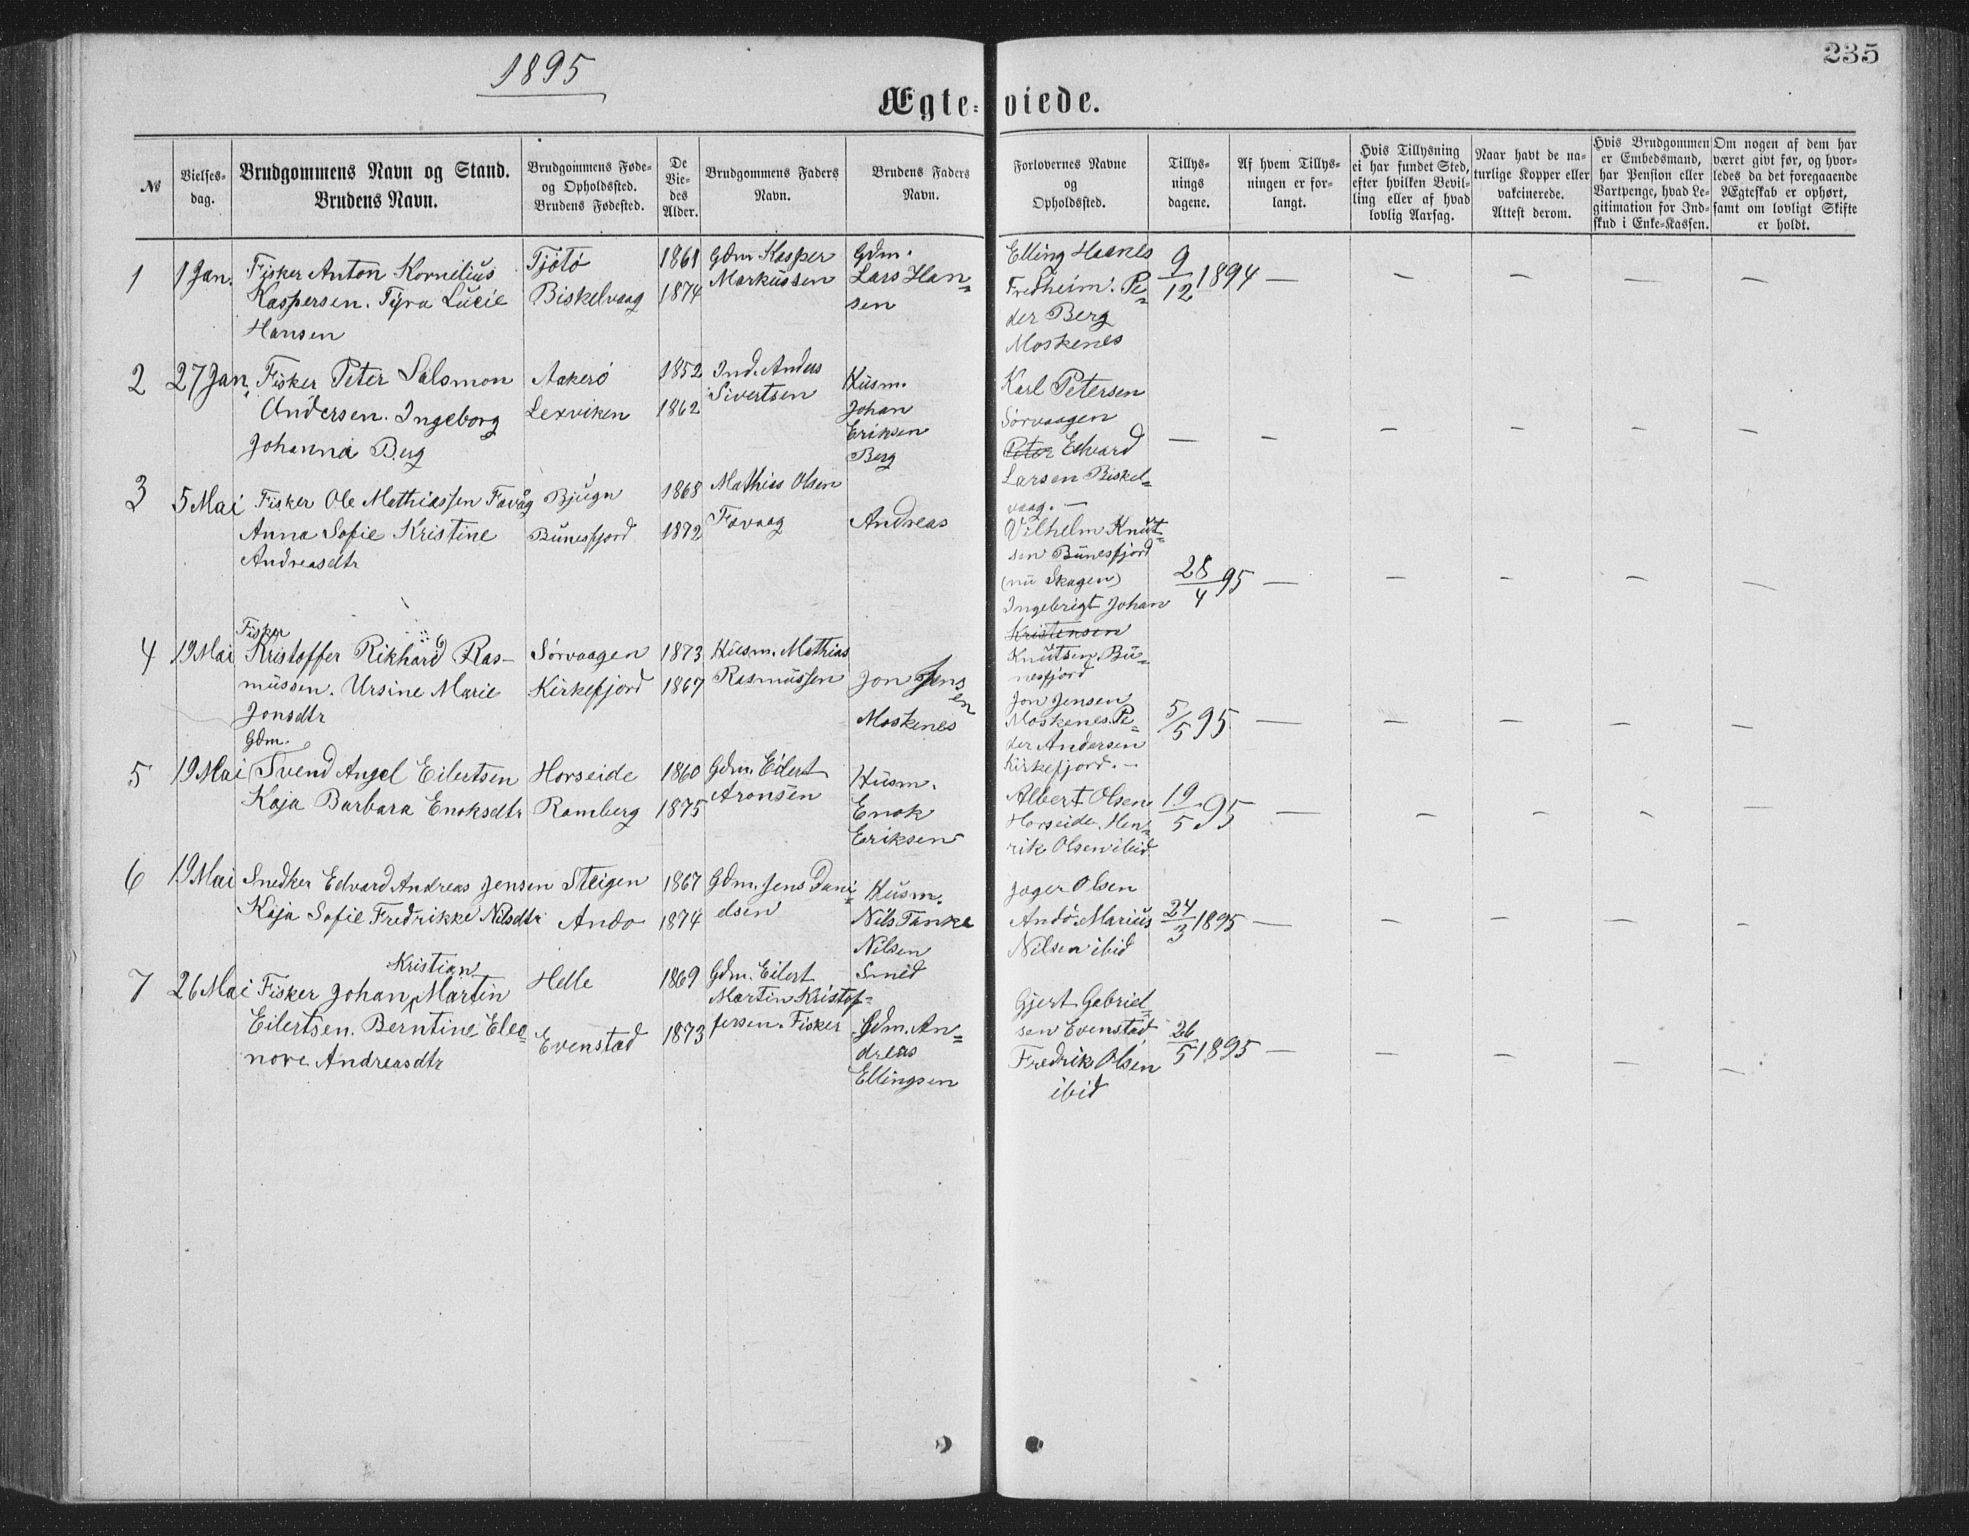 1895
235
Ægte-viede.
№
Vielses-
dag.
Brudgommens Navn og Stand.
Brudens Navn.
Brudgommens Føde-
og Opholdssted.
Brudens Fødested.
De
Vie-
des
Alder.
Brudgommens Faders
Navn.
Brudens Faders
Navn.
Forlovernes Navne
og
Opholdssted.
Tillys-
nings
dagene.
Af hvem Tillys-
ningen er for-
langt.
Hvis Tillysning
ei har fundet Sted,
efter hvilken Bevil-
ling eller af hvad
lovlig Aarsag.
Naar havt de na-
turlige Kopper eller
vakcinerede.
Attest derom.
Hvis Brudgommen
er Embedsmand,
har Pension eller
Vartpenge, hvad Le-
gitimation for Ind-
skud i Enke-Kassen.
Om nogen af dem har
været givt før, og hvor-
ledes da det foregaaende
Ægteskab er ophørt,
samt om lovligt Skifte
er holdt.
1
1 Jan.
Fisker Anton Kornelius
Kaspersen. Tyra Lucie
Hansen
Tjötö
Biskelvaag
1861
1874
Gdm Kasper
Markussen
Gdm.
Lars Han-
sen
Elling Haanes
Fredheim. Pe-
der Berg
Moskenes
9/12 1894 — — — — —
2
27 Jan.
Fisker Peter Salomon
Andersen. Ingeborg
Johanna Berg
Aakerö
Lexviken
1852
1862
Ind. Anders
Sivertsen
Husm.
Johan
Eriksen
Berg
Karl Petersen
Sörvaagen
Peter Edvard
Larsen Biskel-
vaag. —
— — — — — —
3
5 Mai
Fisker Ole Mathiassen Favåg
Anna Sofie Kristine
Andreasdtr
Bjugn
Bunesfjord
1868
1872
Mathias Olsen
Favaag
Andreas
Vilhelm Knut-
sen Bunesfjord
(nu Skagen)
Ingebrigt Johan
Kristensen
Knutsen Bu-
nesfjord
28/4 95 — — — — —
4
19 Mai
Fisker
Kristoffer Rikhard Ras-
mussen. Ursine Marie
Jonsdtr
Sörvaagen
Kirkefjord
1873
1867
Husm. Mathias
Rasmussen
Jon Jens
en
Moskenes
Jon Jensen
Moskenes. Pe-
der Andersen
Kirkefjord. —
5/5 95 — — — — —
5
19 Mai
Gdm.
Svend Angel Eilertsen
Kaja Barbara Enoksdtr
Horseide
Ramberg
1860
1875
Gdm. Eilert
Aronsen
Husm.
Enok
Eriksen
Albert Olsen
Horseide. Hen-
rik Olsen ibid.
19/5 95 — — — — —
6
19 Mai
Snedker Edvard Andreas Jensen
Kaja Sofie Fredrikke Nilsdtr
Steigen
Andö
1867
1874
Gdm. Jens Dani-
elsen
Husm.
Nils Tanke
Nilsen
Jager Olsen
Andö. Marius
Nilsen ibid
24/3 1895 — — — — —
7
26 Mai
Kristian
Fisker Johan Martin
Eilertsen. Berntine Eleo-
nore Andreasdtr
Helle
Evenstad
1869
1873
Gdm. Eilert
Martin Kristof-
fersen. Fisker
Smed
Gdm. An-
dreas
Ellingsen
Gjert Gabriel-
sen Evenstad
Fredrik Olsen
ibid
26/5 1895 — — — — —